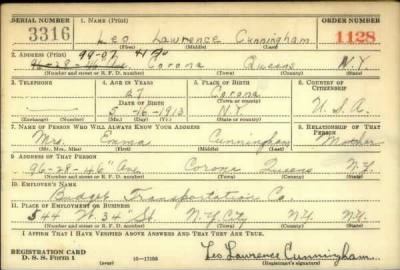 SERIAL NUMBER 1. NAME (Print) ORDER NUMBER
3316 Leo Lawrence Cunningham 1128
(First) (Middle) (Last)
2. ADDRESS (Print) 94-07 41 Av
96-28-46 Ave Corona Queens N.Y.
(Number and street or R. F. D. number) (Town) (County) (State)
3. TELEPHONE 4. AGE IN YEARS 5. PLACE OF BIRTH 6. COUNTRY OF CITIZENSHIP
27 Corona
DATE OF BIRTH (Town or county)
5-16-1913 N.Y. U.S.A.
(Exchange) (Number) (Mo.) (Day) (Yr.) (State or country)
7. NAME OF PERSON WHO WILL ALWAYS KNOW YOUR ADDRESS 8. RELATIONSHIP OF THAT PERSON
Mrs. Emma Cunningham Mother
(Mr., Mrs., Miss) (First) (Middle) (Last)
9. ADDRESS OF THAT PERSON
96-28-46" Ave Corona Queens N.Y.
(Number and street or R. F. D. number) (Town) (County) (State)
10. EMPLOYER'S NAME
Budget Transportation Co.
11. PLACE OF EMPLOYMENT OR BUSINESS
544 W. 34" St. N.Y. City N.Y. N.Y.
(Number and street or R. F. D. number) (Town) (County) (State)
I AFFIRM THAT I HAVE VERIFIED ABOVE ANSWERS AND THAT THEY ARE TRUE.
REGISTRATION CARD
D. S. S. Form 1 (over) 16-17105 Leo Lawrence Cunningham
(Registrant's signature)